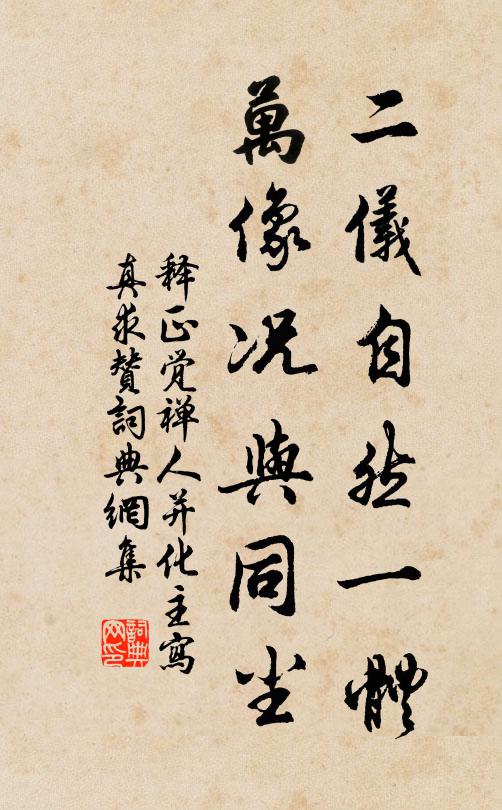 二儀自然一體
萬像況與同尘
释正觉禅人并化主寫
真求贊詞典網集
詞典网印